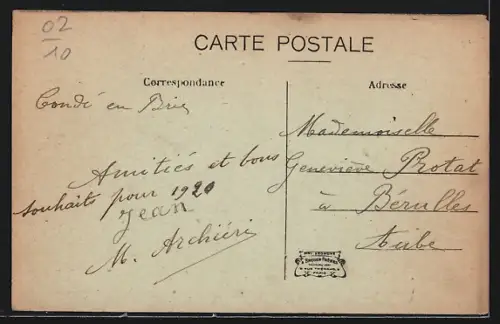 02
10
CARTE POSTALE
Correspondance
Adresse
Condé en Brie
Amitiés et bons
souhaits pour 1920
Jean
M. Archiéri
Mademoiselle
Geneviève Protat
à Bérulles
Aube
PARIS